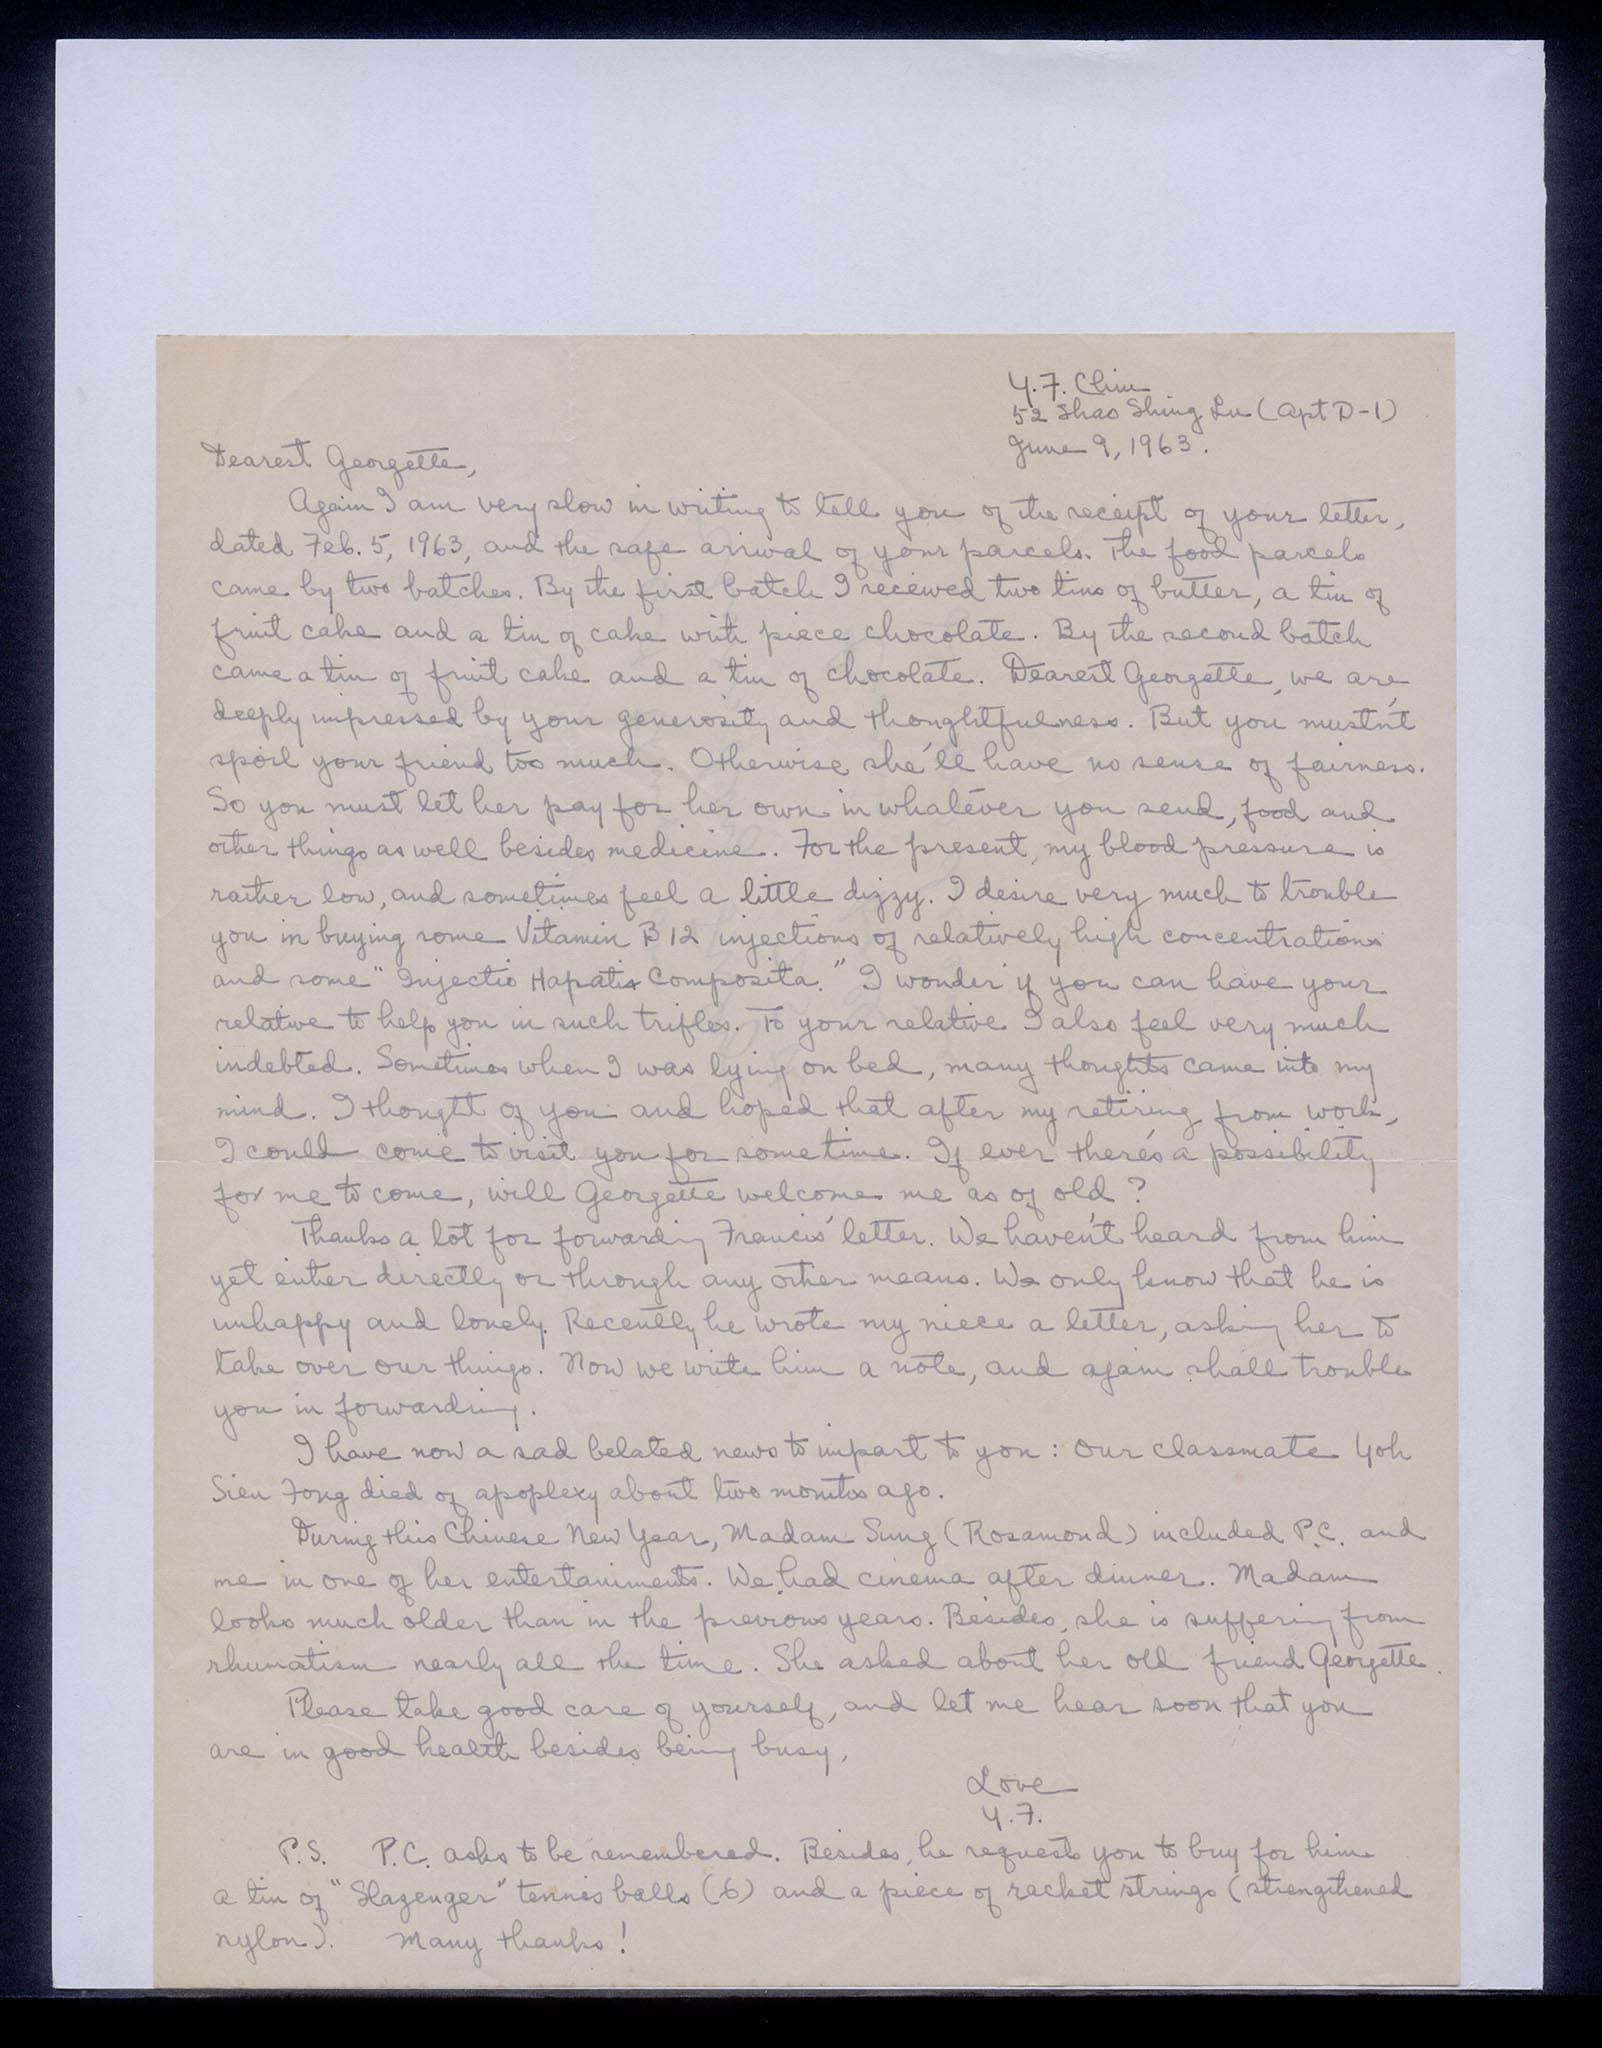 Y. F. Chiu
52 Shao Shing Lu (Apt D-1)
June 9, 1963.
Dearest Georgette,
Again I am very slow in writing to tell you of the receipt of your letter,
dated Feb. 5, 1963, and the safe arrival of your parcels. The food parcels
came by two batches. By the first batch I received two tins of butter, a tin of
fruit cake and a tin of cake with piece chocolate. By the second batch
came a tin of fruit cake and a tin of chocolate. Dearest Georgette, we are
deeply impressed by your generosity and thoughtfulness. But you mustn't
spoil your friend too much. Otherwise she'll have no sense of fairness.
So you must let her pay for her own in whatever you send, food and
other things as well besides medicine. For the present, my blood pressure is
rather low, and sometimes feel a little dizzy. I desire very much to trouble
you in buying some Vitamin B 12 injections of relatively high concentrations
and some "Injectio Hapatis Composita." I wonder if you can have your
relative to help you in such trifles. To your relative I also feel very much
indebted. Sometimes when I was lying on bed, many thoughts came into my
mind. I thought of you and hoped that after my retiring from work,
I could come to visit you for some time. If ever there's a possibility
for me to come, will Georgette welcome me as of old?
Thanks a lot for forwarding Francis' letter. We haven't heard from him
yet either directly or through any other means. We only know that he is
unhappy and lonely. Recently he wrote my niece a letter, asking her to
take over our things. Now we write him a note, and again shall trouble
you in forwarding.
I have now a sad belated news to impart to you: our classmate Yoh
Sien Fong died of apoplexy about two months ago.
During this Chinese New Year, Madam Sung (Rosamond) included P.C. and
me in one of her entertainments. We had cinema after dinner. Madam
looks much older than in the previous years. Besides, she is suffering from
rhumatism nearly all the time. She asked about her old friend Georgette.
Please take good care of yourself, and let me hear soon that you
are in good health besides being busy,
Love
Y. F.
P.S. P.C. asks to be remembered. Besides, he requests you to buy for him
a tin of "Slazenger" tennis balls (6) and a piece of racket strings (strengthened
nylon). Many thanks!